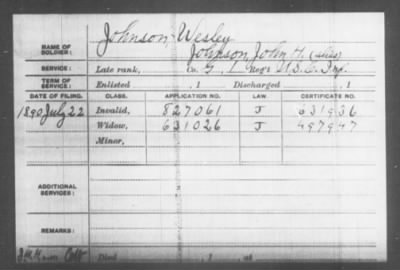 Johnson Wesley
NAME OF SOLDIER: Johnson, John H. (alias)
SERVICE: Late rank, Co. G, 1 Reg't U.S.C. Inf.
TERM OF SERVICE: Enlisted , 1 Discharged , 1
DATE OF FILING. CLASS. APPLICATION NO. LAW. CERTIFICATE NO.
1890 July 22 Invalid, 827061 J 631936
Widow, 631026 J 497947
Minor,
ADDITIONAL SERVICES:
REMARKS:
Died , 1 , at